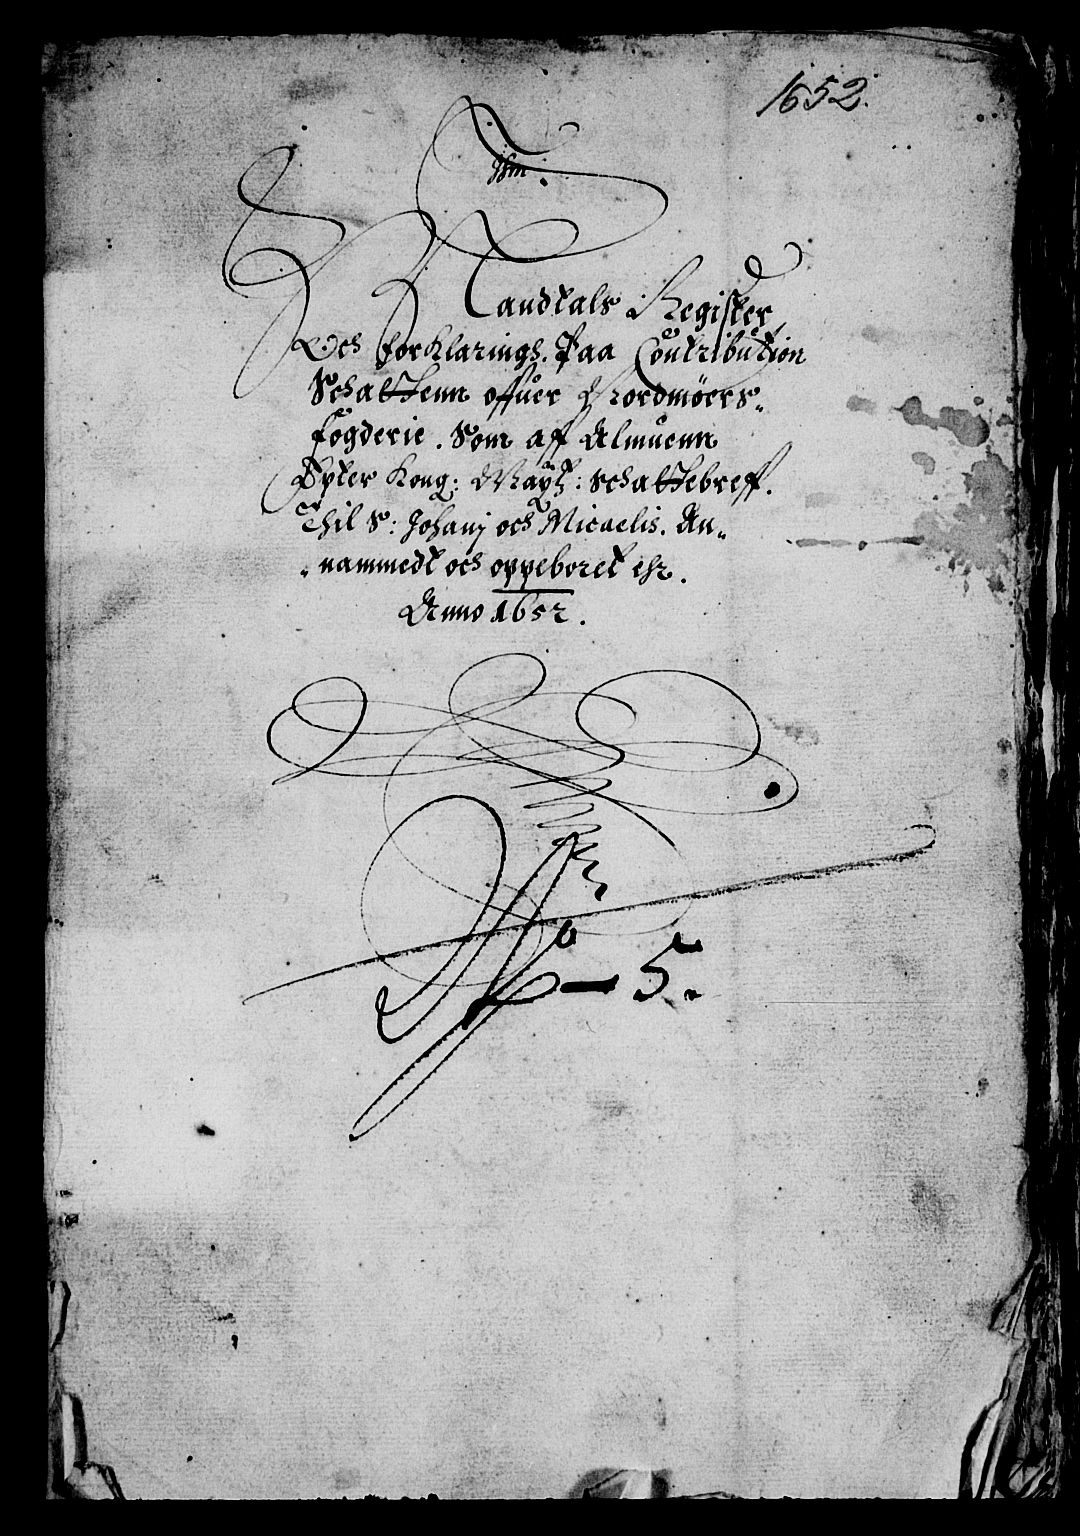 1652.
Jhm.
Mandtals Register
Och forklaringh. Paa Contribution
Schattenn offuer Nordmøers-
fogderie. Som aff Almuenn
Epter Kong: Maytz: schattebreff.
Thil S: Johanj och Micaelis. An-
-nammedt och oppeboret ehr.
Anno 1652.
No - 5.